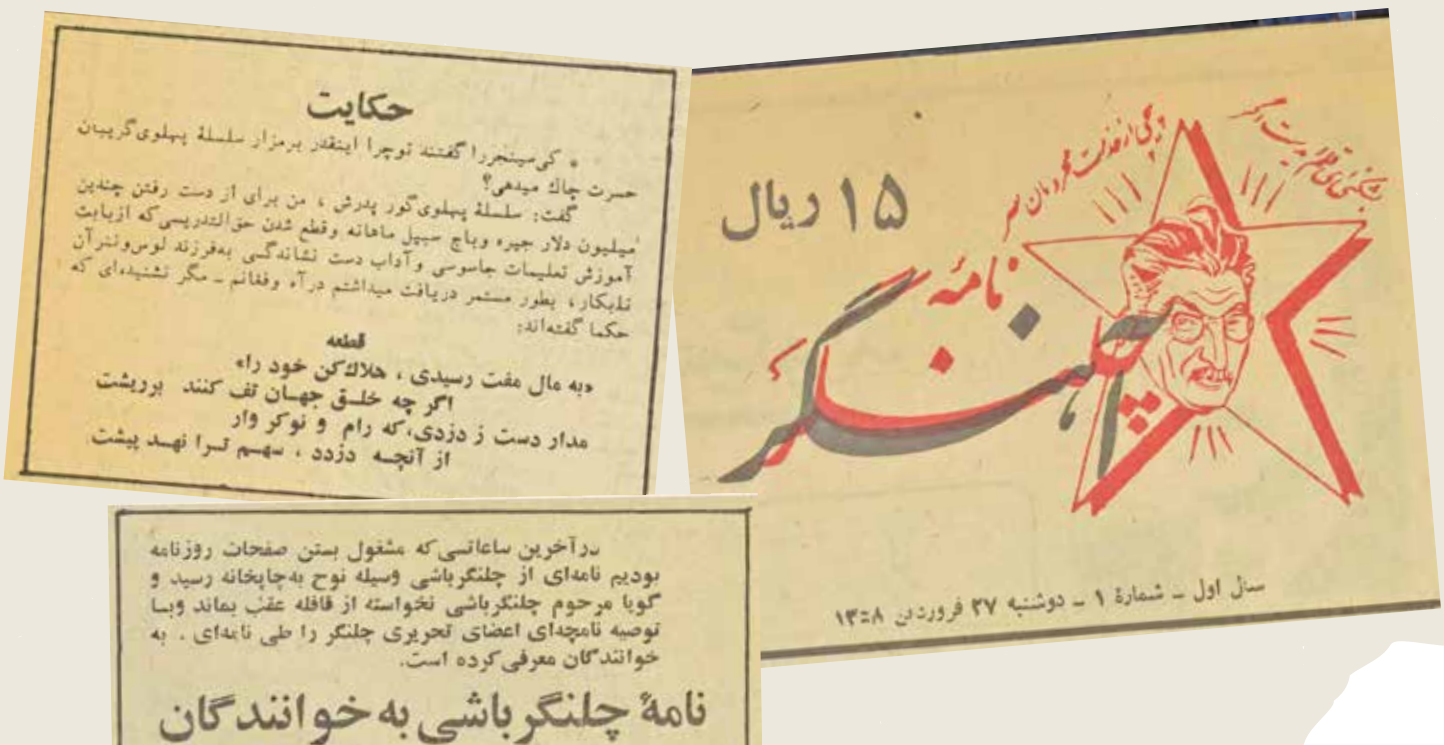 حکایت
* کی‌سینجررا گفتند توچرا اینقدر برمزار سلسلهٔ پهلوی‌گریبان
حسرت چاك میدهی؟
گفت: سلسلهٔ پهلوی‌گور پدرش ، من برای از دست رفتن چندین
میلیون دلار جیره وباج سبیل ماهانه وقطع شدن حق‌التدریسی‌که ازبابت
آموزش تعلیمات جاسوسی وآداب دست نشاندگی به‌فرزند لوس‌وننرآن
نابکار ، بطور مستمر دریافت میداشتم درآه وفغانم ـ مگر نشنیده‌ای که
حکما گفته‌اند:
قطعه
«به مال مفت رسیدی ، هلاك‌کن خود را»
اگر چه خلـق جهـان تف کنند برریشت
مدار دست ز دزدی،که رام و نوکر وار
از آنچـه دزدد ، سهـم تـرا نهـد پیشت
۱۵ ریال
نامهٔ
چلنگر
آهنگر
سال اول ـ شمارهٔ ۱ ـ دوشنبه ۲۷ فروردین ۱۳۵۸
درآخرین ساعاتـی‌که مشغول بستن صفحات روزنامه
بودیم نامه‌ای از چلنگرباشی وسیله نوح به‌چاپخانه رسید و
گویا مرحوم چلنگرباشی نخواسته از قافله عقب بماند وبـا
توصیه نامچه‌ای اعضای تحریری چلنگر را طی نامه‌ای . به
خوانندگان معرفی‌کرده است.
نامهٔ چلنگرباشی به‌خوانندگان